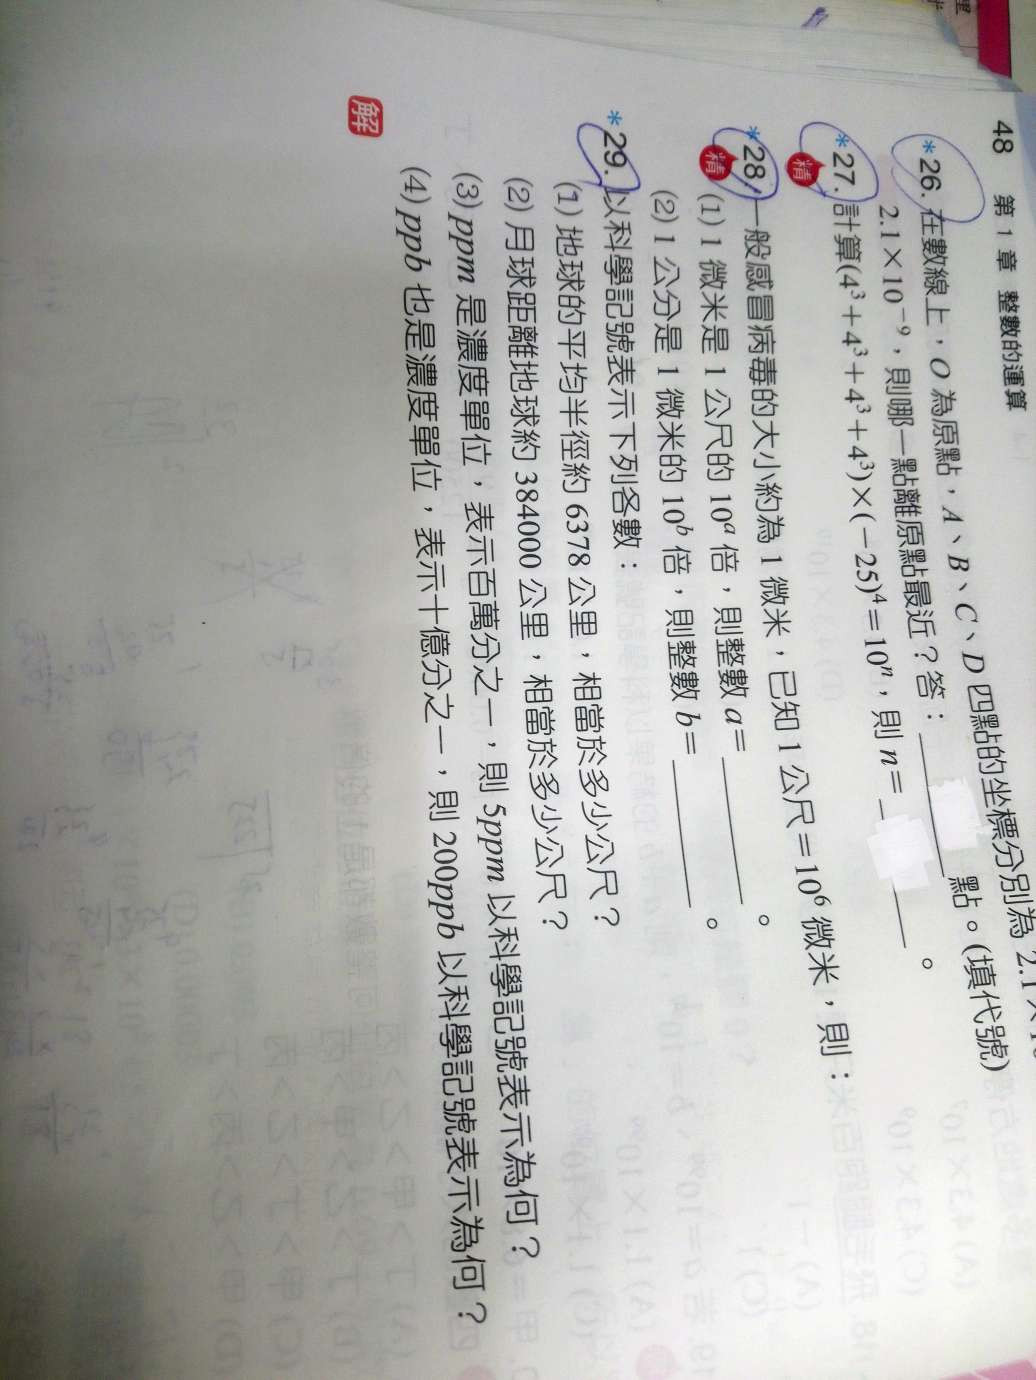 48 第 1 章 整數的運算
*26. 在數線上，O 為原點，A、B、C、D 四點的坐標分別為 2.1×10
2.1×10⁻⁹，則哪一點離原點最近？答：＿＿＿＿點。(填代號)
*27. 計算(4³＋4³＋4³＋4³)×(－25)⁴＝10ⁿ，則 n＝＿＿＿＿。
精
*28. 一般感冒病毒的大小約為 1 微米，已知 1 公尺＝10⁶ 微米，則：
精 (1) 1 微米是 1 公尺的 10ᵃ 倍，則整數 a＝＿＿＿＿。
(2) 1 公分是 1 微米的 10ᵇ 倍，則整數 b＝＿＿＿＿。
*29. 以科學記號表示下列各數：
(1) 地球的平均半徑約 6378 公里，相當於多少公尺？
(2) 月球距離地球約 384000 公里，相當於多少公尺？
(3) ppm 是濃度單位，表示百萬分之一，則 5ppm 以科學記號表示為何？
(4) ppb 也是濃度單位，表示十億分之一，則 200ppb 以科學記號表示為何？
解